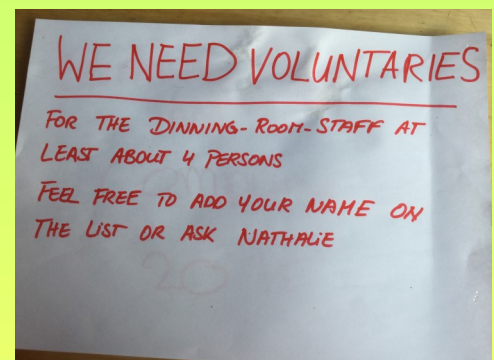 WE NEED VOLUNTARIES
FOR THE DINNING-ROOM-STAFF AT
LEAST ABOUT 4 PERSONS
FEEL FREE TO ADD YOUR NAME ON
THE LIST OR ASK NATHALiE
20